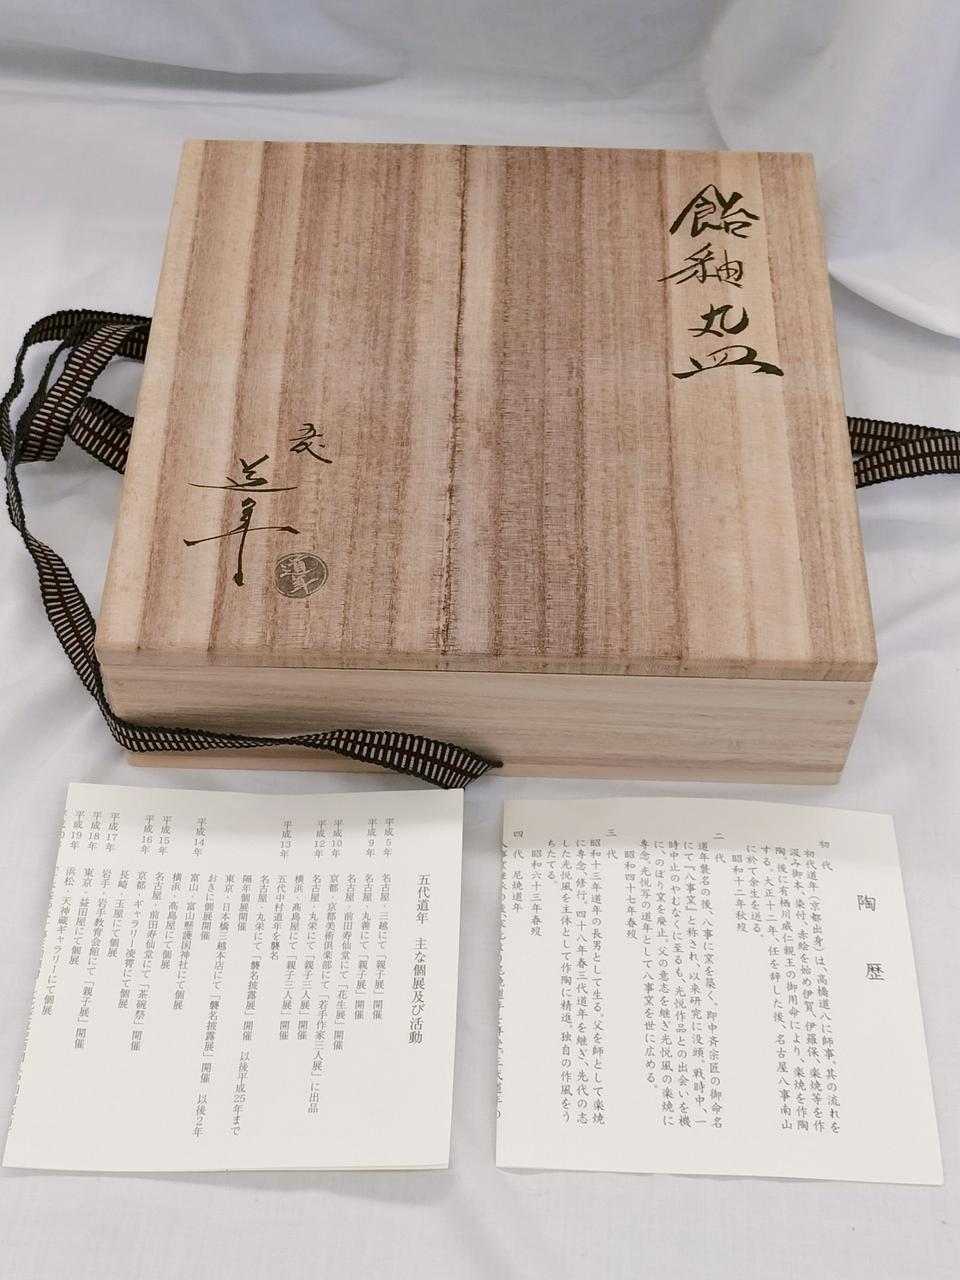 飴釉
丸皿
道年
道年
陶歴
初代
初代道年(京都出身)は、高橋道八に師事。其の流れを
汲み御本、染付、赤絵を始め伊賀、伊羅保、楽焼等を作
陶。後に有栖川威仁親王の御用命により、楽焼を作陶
する。大正十二年、任を辞した後、名古屋八事南山
に於て余生を送る。
昭和十二年秋歿
二代
道年襲名の後、八事に窯を築く。即中斉宗匠の御命名
にて「八事窯」と称され、以来研究に没頭。戦時中、一
時中止のやむなくに至るも、光悦作品との出会いを機
に、のぼり窯を廃止。父の意志を継ぎ光悦風の楽焼に
専念。光悦写の道年として八事窯を世に広める。
昭和四十七年春歿
三代
昭和十三年道年の長男として生る。父を師として楽焼
に専念、修行。四十八年春三代道年を継ぎ、先代の志
した光悦風を主体として作陶に精進。独自の作風をう
ちたてる。
昭和六十三年春歿
四代 尼焼道年
五代道年 主な個展及び活動
平成5年 名古屋・三越にて「親子展」開催
平成9年 名古屋・丸善にて「親子展」開催
平成10年 名古屋・前田寿仙堂にて「花生展」開催
京都・京都美術倶楽部にて「若手作家三人展」に出品
平成12年 名古屋・丸栄にて「親子三人展」開催
横浜・髙島屋にて「親子三人展」開催
平成13年 五代中村道年を襲名
名古屋・丸栄にて「襲名披露展」開催 以後平成25年まで
隔年個展開催
東京・日本橋三越本店にて「襲名披露展」開催 以後2年
おきに個展開催
平成14年 富山・富山縣護国神社にて個展
横浜・髙島屋にて個展
平成15年 名古屋・前田寿仙堂にて個展
平成16年 京都・ギャラリー凌霄にて「茶碗祭」開催
長崎・玉屋にて個展
平成17年 岩手・岩手教育会館にて「親子展」開催
平成18年 東京・益田屋にて個展
平成19年 浜松・天神蔵ギャラリーにて個展